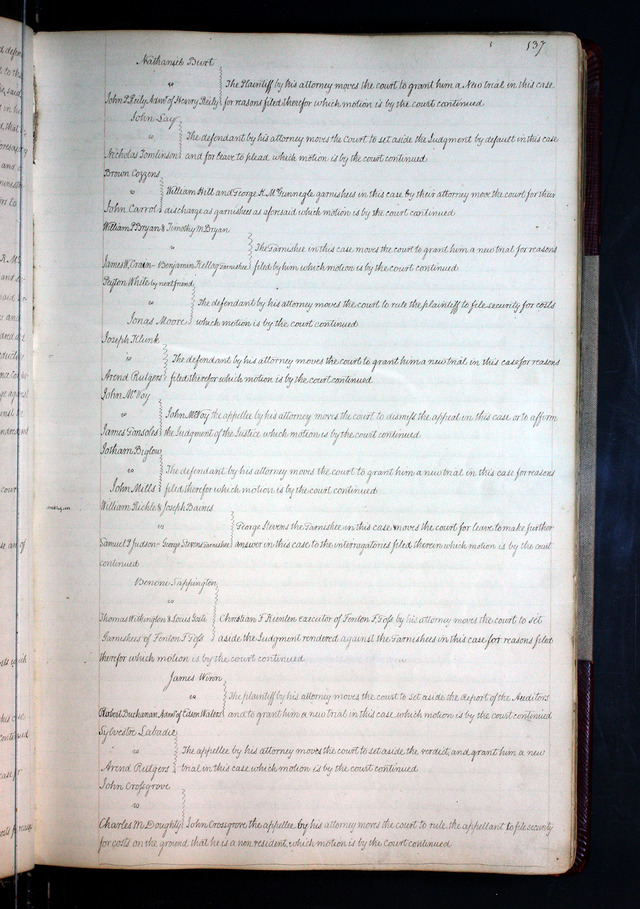 137
Nathaniel Burt
vs
The Plaintiff by his attorney moves the court to grant him a New trial in this case
John P. Reily Admr of Henry Reily for reasons filed therefor which motion is by the court continued
John Lay
vs
The defendant by his attorney moves the Court to set aside the Judgment by default in this case
Nicholas Tomlinson and for leave to plead which motion is by the court continued
Brown Cozzens
vs
William Hill and George K. McGunnegle garnishees in this case by their attorney move the court for their
John Carrol discharge as garnishees as aforesaid which motion is by the court continued
William P Bryan & Timothy M. Bryan
vs
The Garnishee in this case moves the court to grant him a new trial for reasons
James W. Crain - Benjamin Kellog Garnishee filed by him which motion is by the court continued
Peyton White by next friend
vs
The defendant by his attorney moves the court to rule the plaintiff to file security for costs
Jonas Moore which motion is by the court continued
Joseph Klunk
vs
The defendant by his attorney moves the court to grant him a new trial in this case for reasons
Arend Rutgers filed therefor which motion is by the court continued.
John McVoy
vs
John McVoy the appellee by his attorney moves the court to dismiss the appeal in this case or to affirm
James Gonsoles the Judgment of the Justice which motion is by the court continued
Jotham Biglow
vs
The defendant by his attorney moves the court to grant him a new trial in this case for reasons
John Mells filed therefor which motion is by the court continued
William Rickle & Joseph Baines
vs
George Stevens the Garnishee in this case moves the court for leave to make further
Samuel P Judson - George Stevens Garnishee answer in this case to the interrogatories filed therein which motion is by the court
continued
Benoni Sappington
vs
Thomas Withington & Louis Gale Christian F Kienlen executor of Fenlon F. Foss by his attorney moves the court to set
Garnishees of Fenlon F Foss aside the Judgment rendered against the Garnishees in this case for reasons filed
therefor which motion is by the court continued
James Wiron
vs
The plaintiff by his attorney moves the court to set aside the report of the Auditors
Robert Buchanan Admr of Edson Waler and to grant him a new trial in this case which motion is by the court continued
Sylvestre Labadie
vs
The appellee by his attorney moves the court to set aside the verdict, and grant him a new
Arend Rutgers trial in this case which motion is by the court continued
John Crossgrove
vs
Charles M. Doughty John Crossgrove the appellee by his attorney moves the court to rule the appellant to file security
for costs on the ground that he is a non resident, which motion is by the Court continued